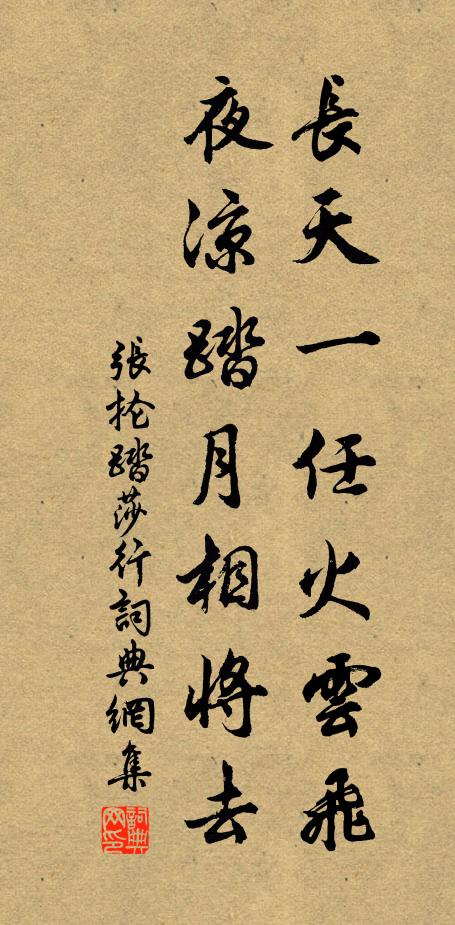 長天一任火雲飛
夜涼踏月相將去
張掄踏莎行詞典網集
詞典网印